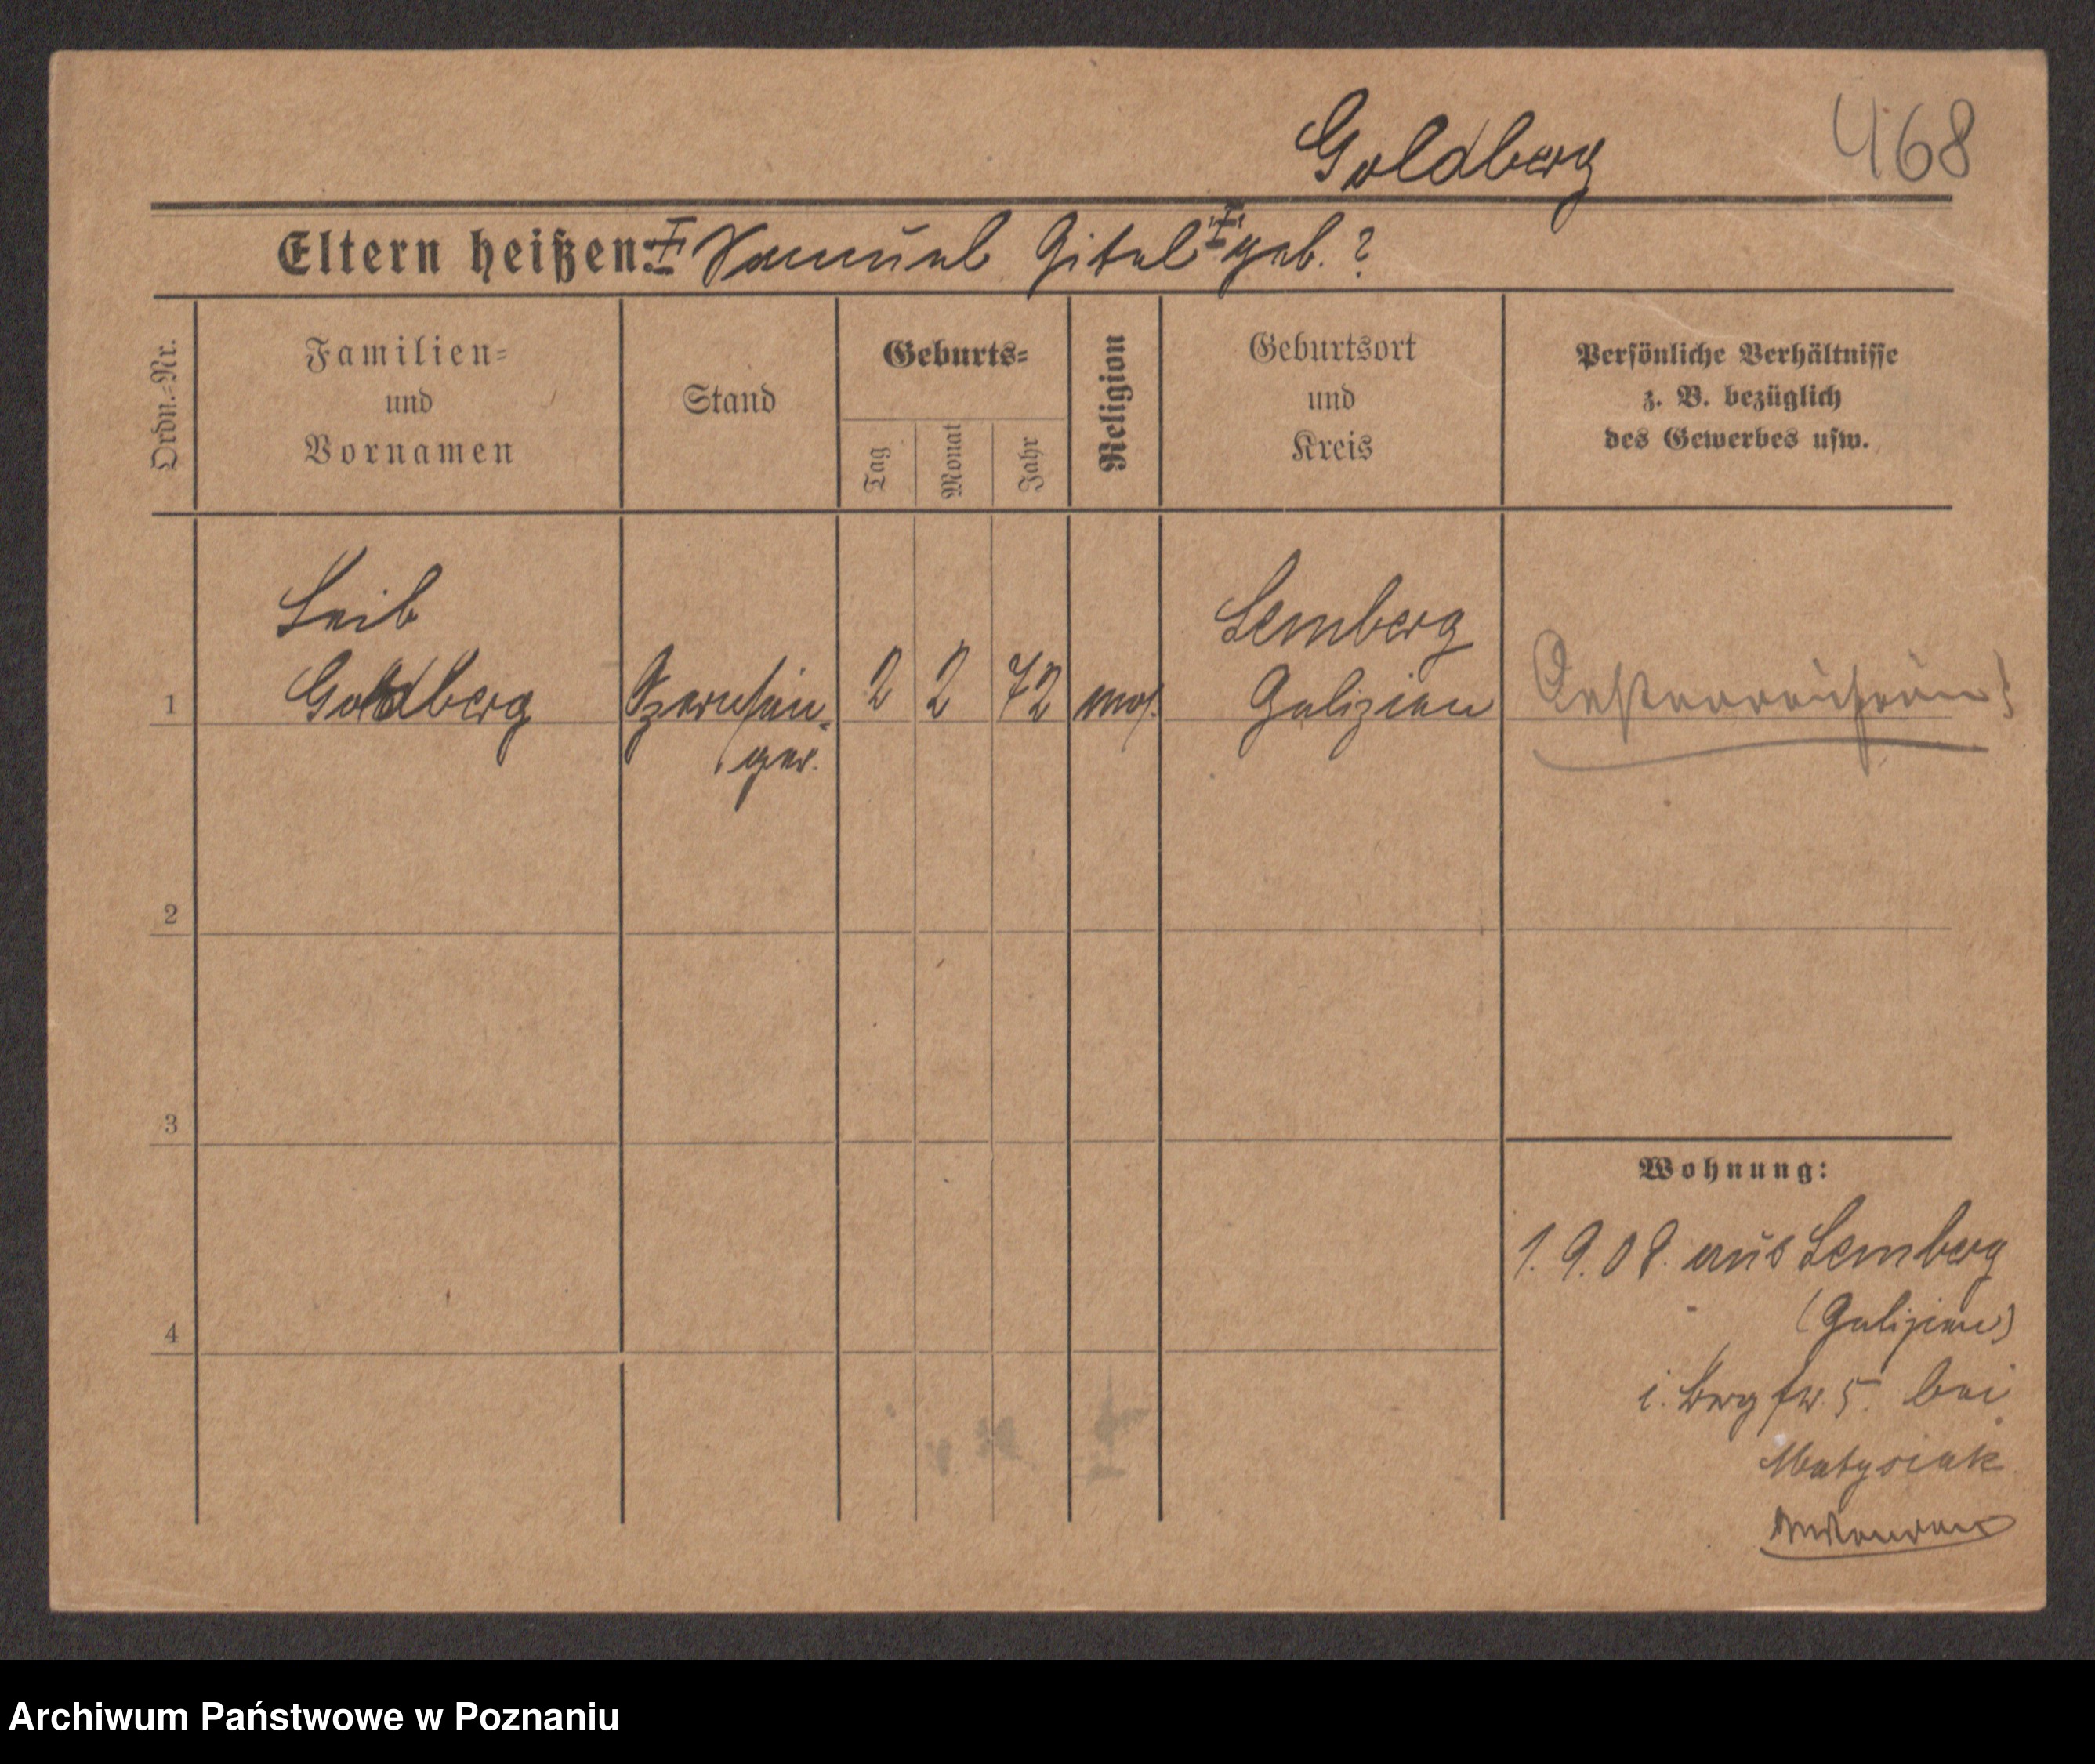 Goldberg 468
Eltern heißen: I Samuel Gitel I geb. ?
Ordn.-Nr.
Familien-
und
Vornamen
Stand
Geburts-
Tag
Monat
Jahr
Religion
Geburtsort
und
Kreis
Persönliche Verhältnisse
z. B. bezüglich
des Gewerbes usw.
Leib Lemberg
1 Goldberg 2 2 72 mos. Galizien
ger.
2
3
4
Wohnung:
1.9.08. aus Lemberg
(Galizien)
5. bei
Matysiak
Archiwum Państwowe w Poznaniu